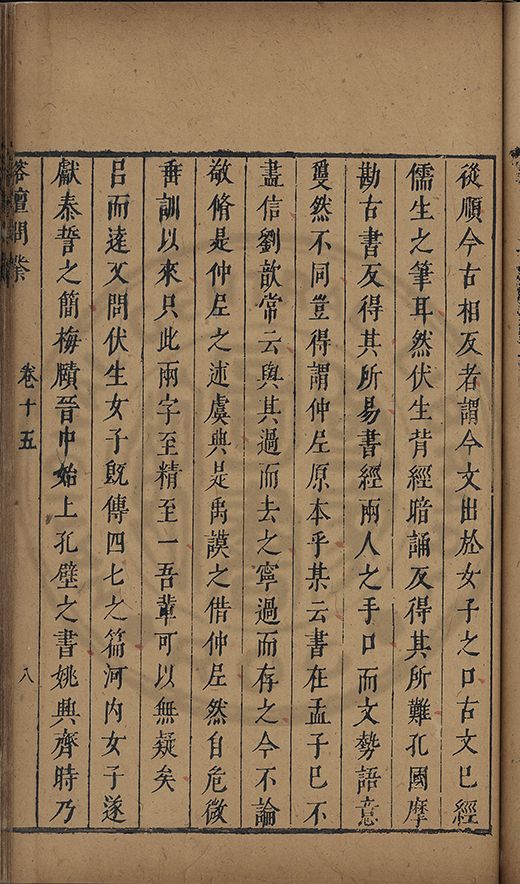 從順今古相反者謂今文出於女子之口古文已經
儒生之筆耳然伏生背經暗誦反得其所難孔國摩
勘古書反得其所易書經兩人之手口而文勢語意
敻然不同豈得謂仲尼原本乎某云書在孟子已不
盡信劉歆常云與其過而去之寧過而存之今不論
敬脩是仲尼之述虞典是禹謨之借仲尼然自危微
垂訓以來只此兩字至精至一吾輩可以無疑矣
呂而遠又問伏生女子旣傳四七之篇河內女子遂
獻泰誓之簡梅賾晉中始上孔壁之書姚興齊時乃
榕壇問業 卷十五 八